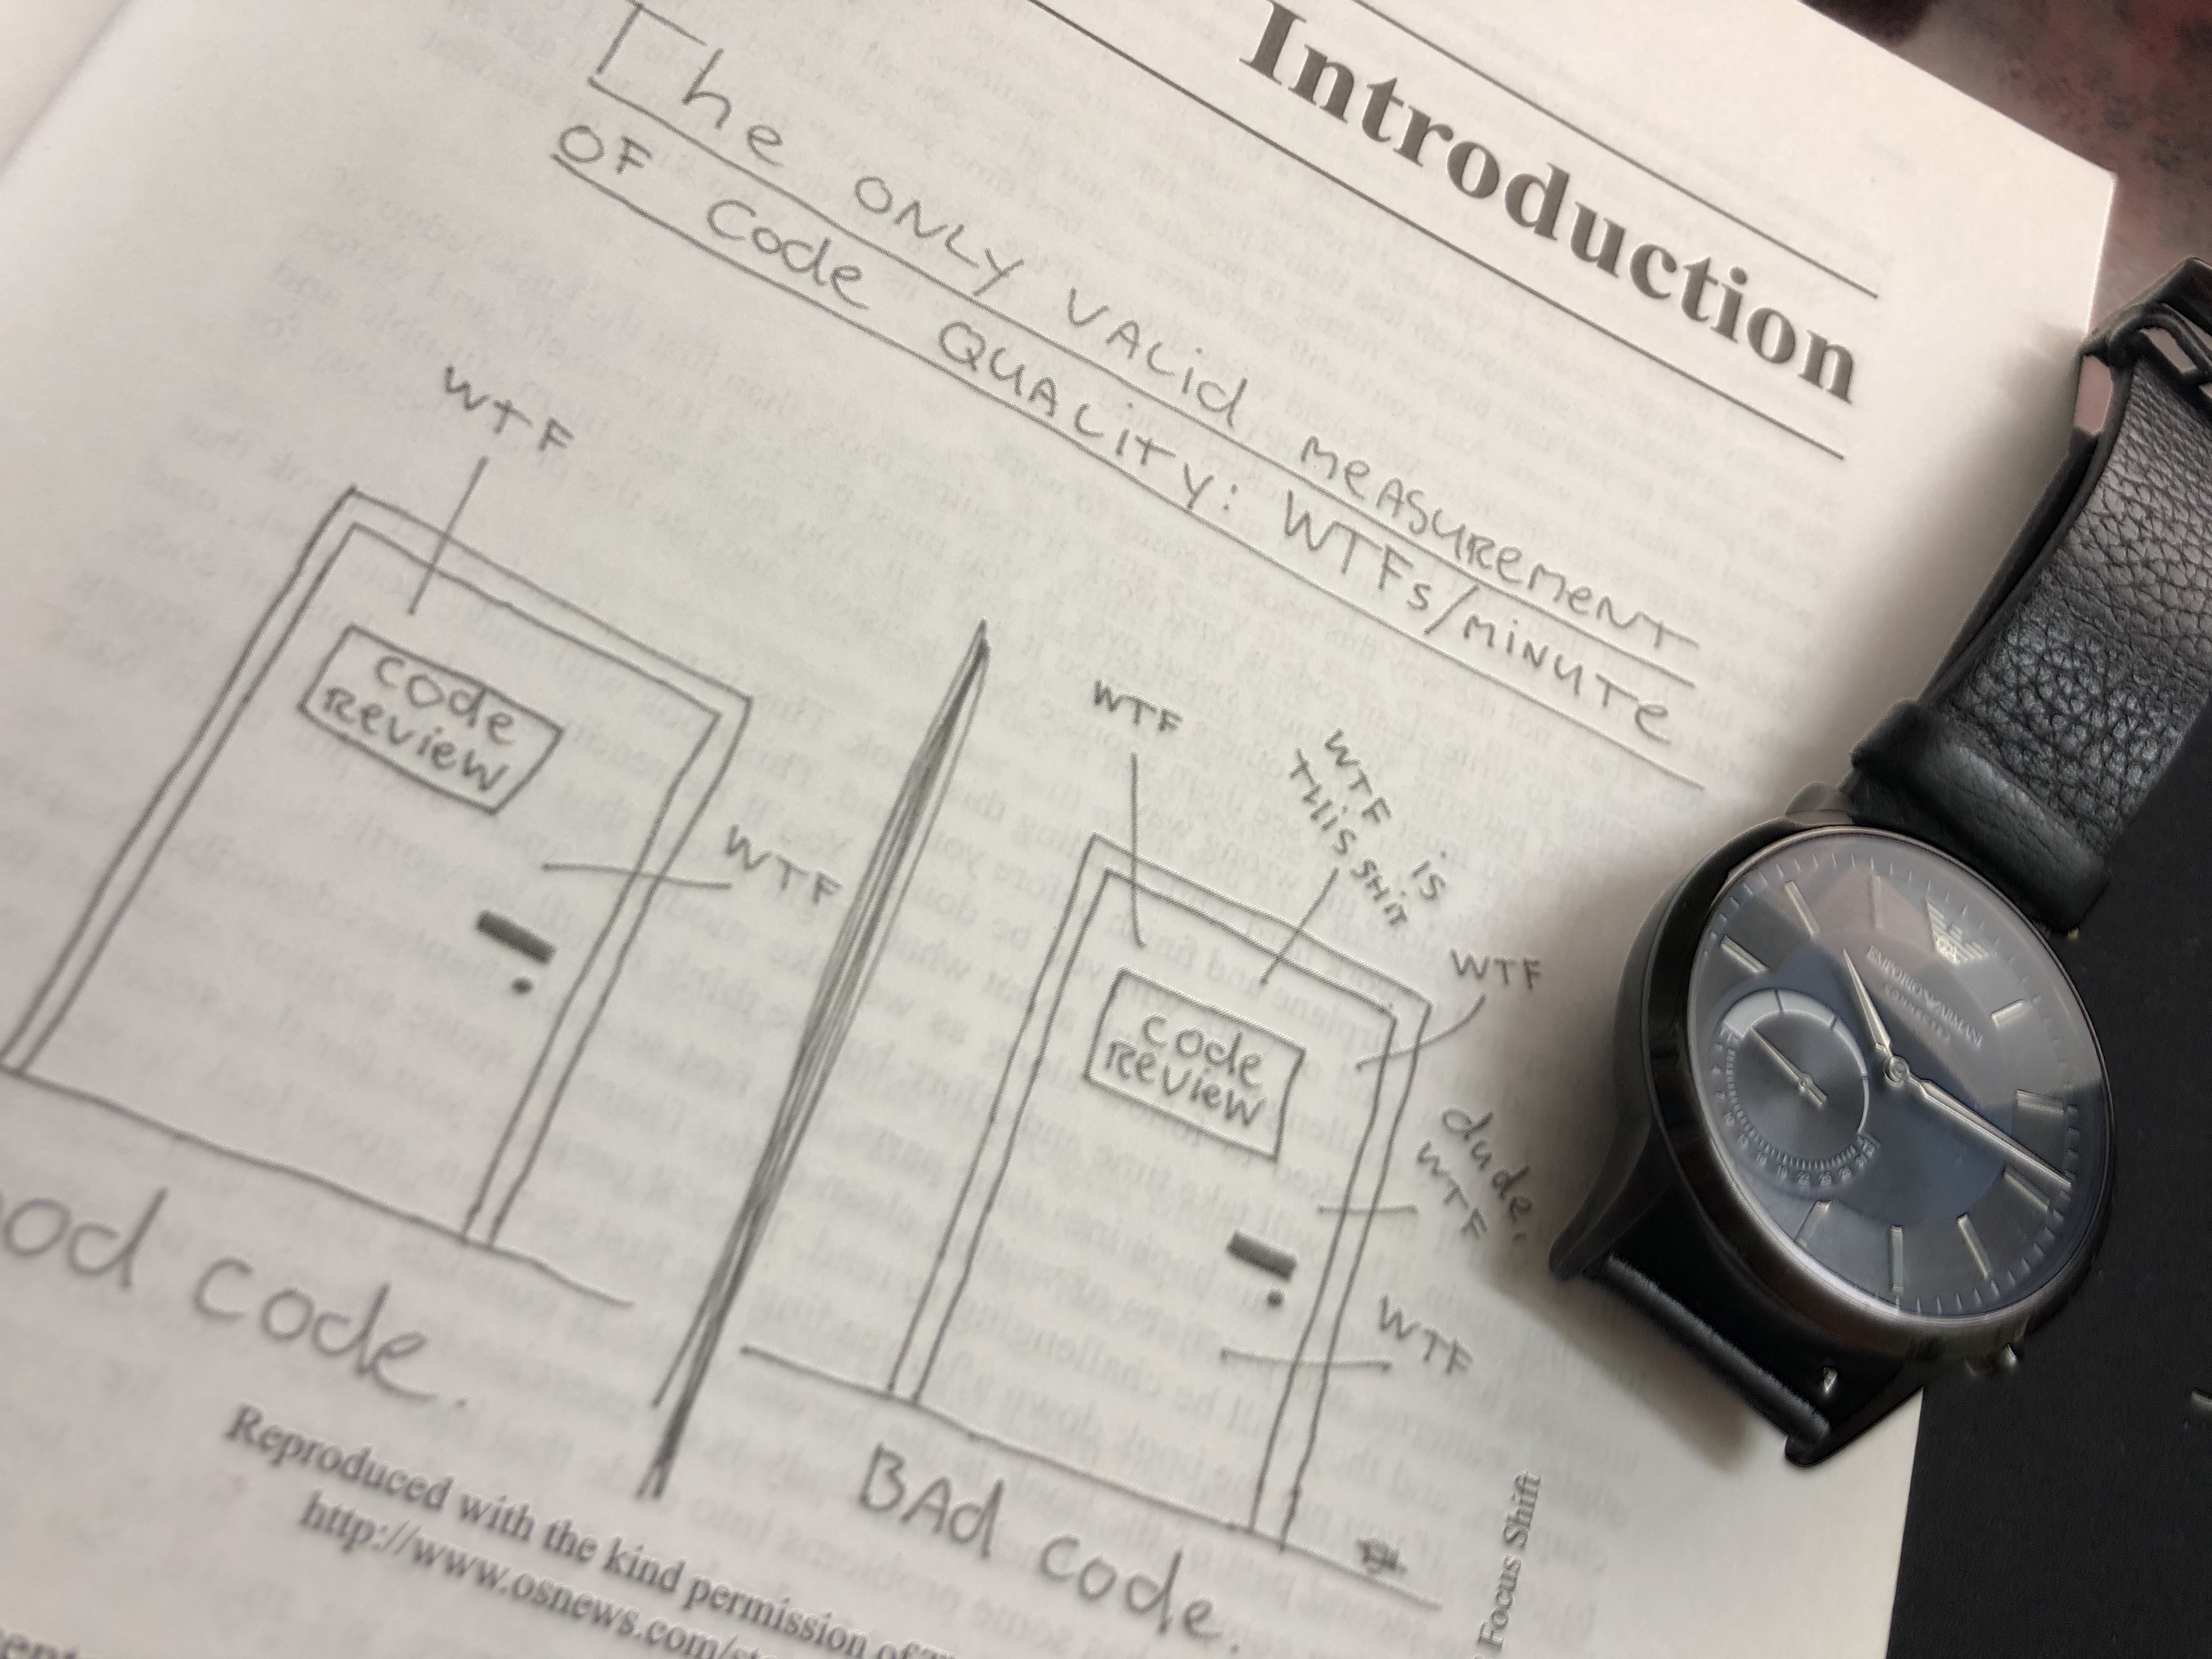 Introduction
The ONLY VALid MeASUReMeNT
OF Code QUALiTY: WTFs/MiNUTe
WTF
Code
Review
WTF
ood code.
WTF
WTF is
THis SHiT
WTF
Code
Review
dude,
WTF
WTF
BAd code.
Reproduced with the kind permission of
http://www.osnews.com/
Focus Shift
EMPORIO ARMANI
CONNECTED